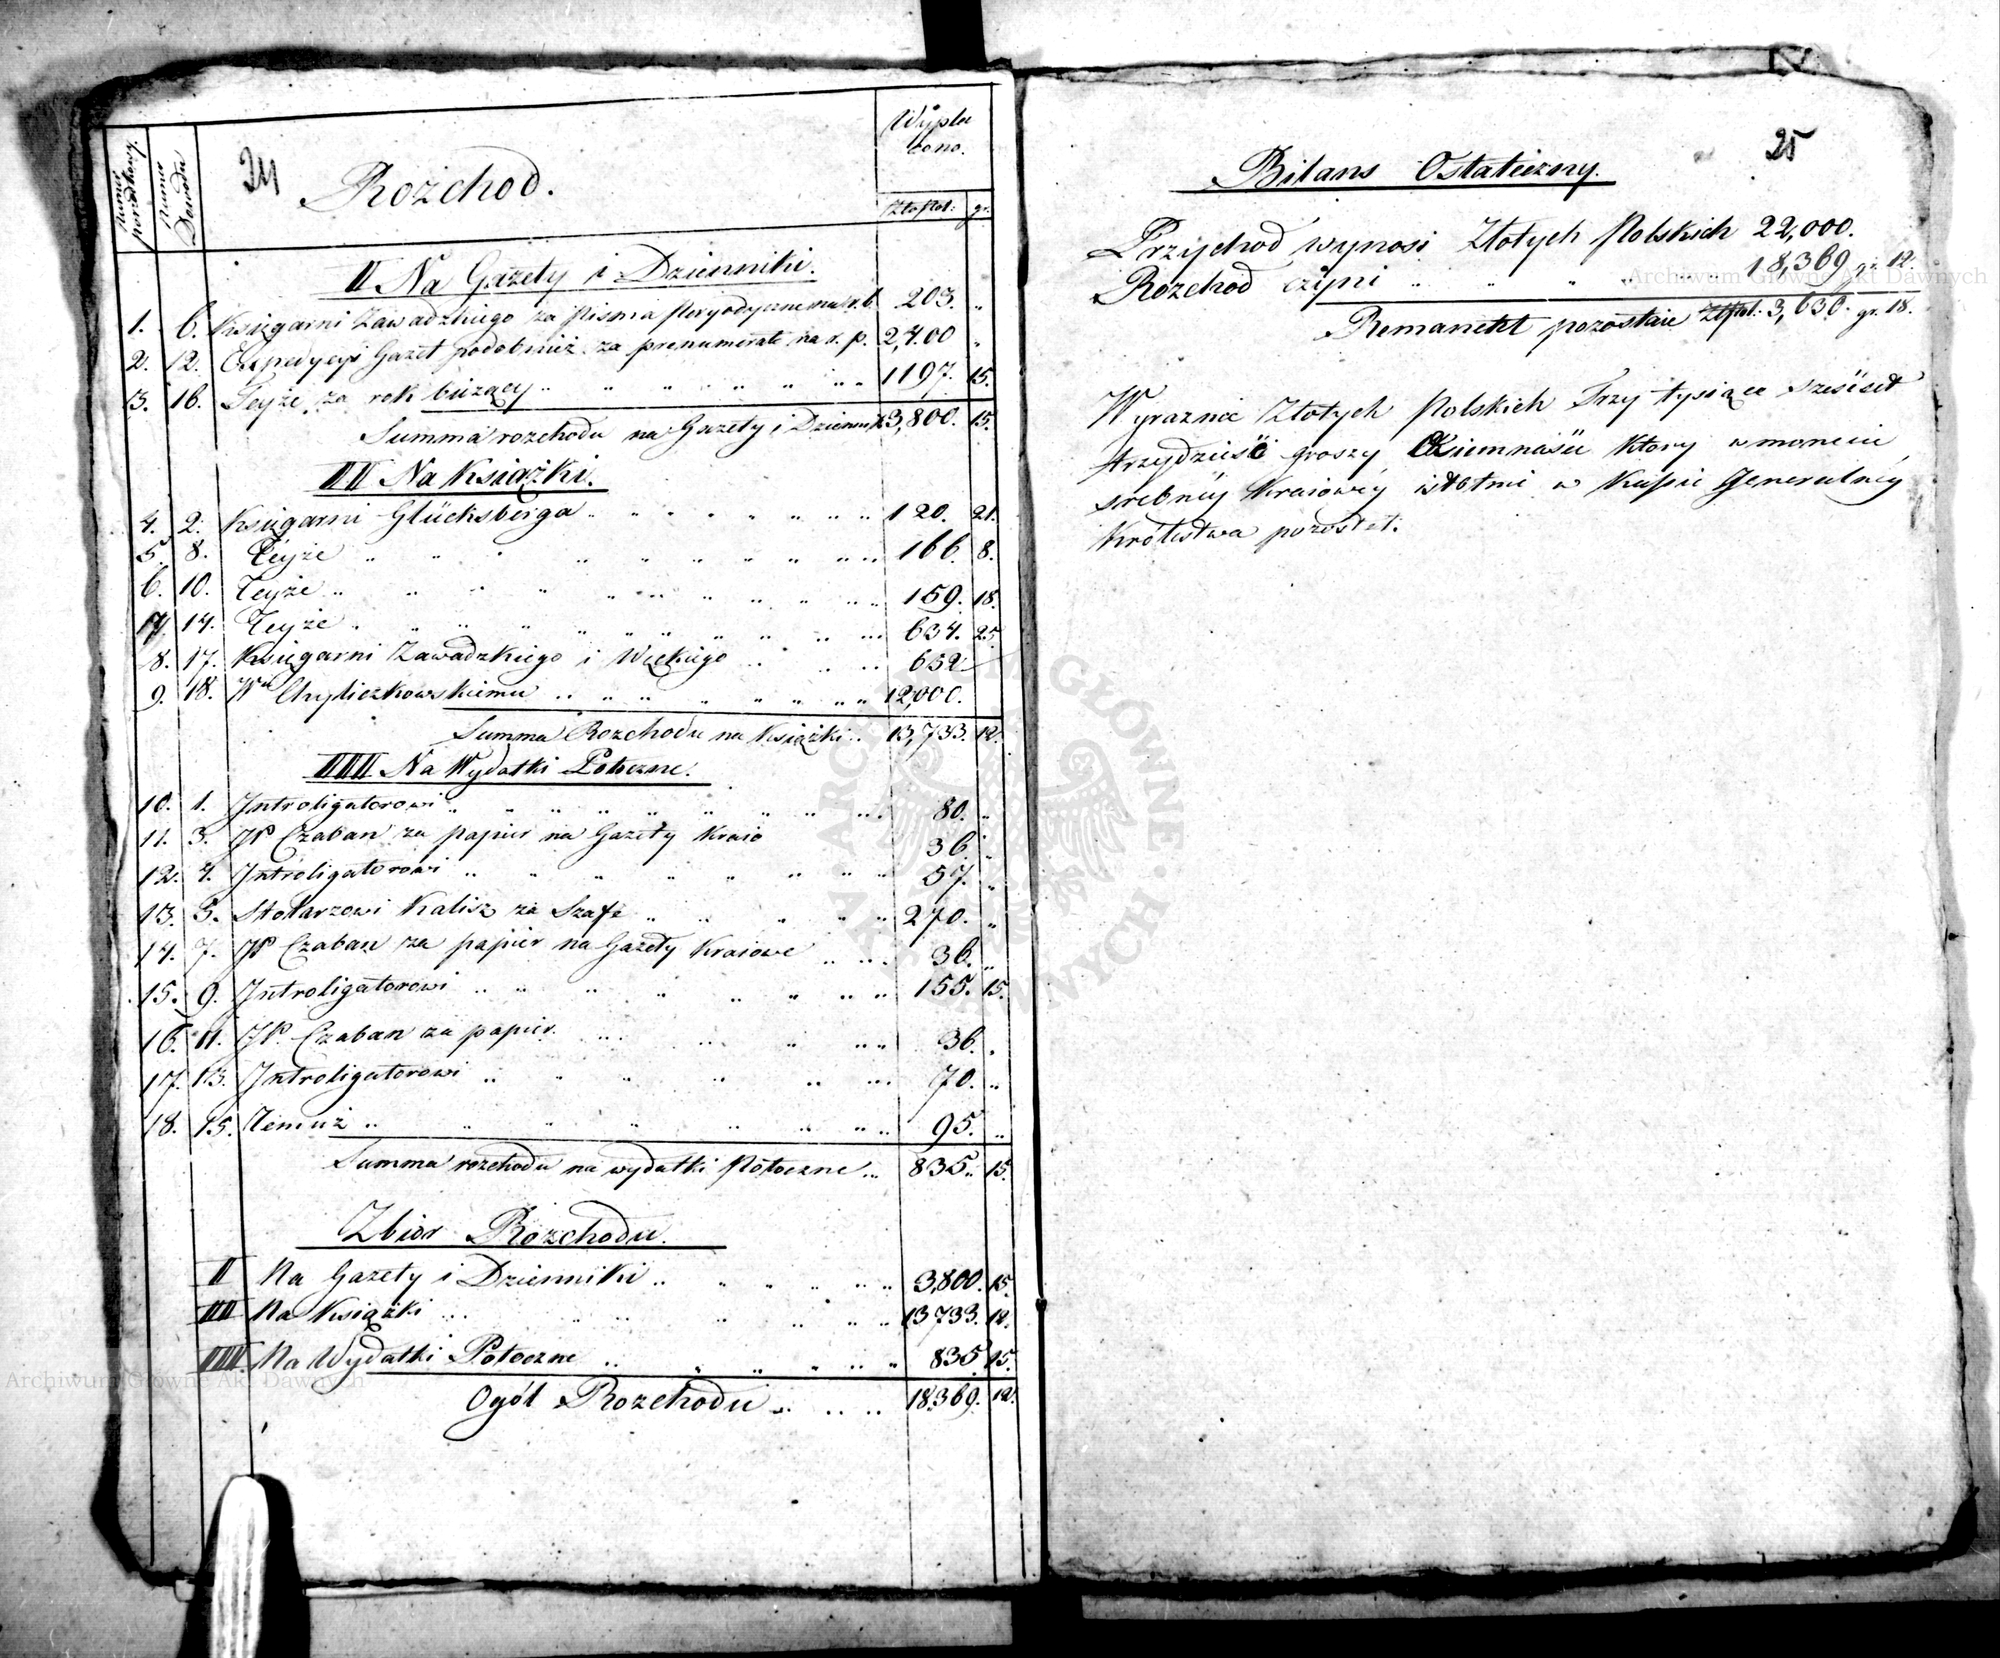 24
Numer porządkowy.
Numer Dowodu
Rozchod.
Wypła
cono.
Zło Pol: gr.
II Na Gazety i Dzienniki.
1. 6. Księgarni Zawadzkiego za Pisma Peryodyczne na r. b. 203. „
2. 12. Expedycyi Gazet podobnież za prenumeratę na r. p. 2,400 „
3. 16. Teyże za rok bieżący „ „ „ 1197. 15.
Summa rozchodu na Gazety i Dzienniki 3,800. 15.
III Na Książki.
4. 2. Księgarni Glücksberga „ „ „ 120. 21.
5. 8. Teyże „ „ „ 166. 8.
6. 10. Teyże „ „ „ 159. 18.
7. 14. Teyże „ „ „ 634. 25
8. 17. Księgarni Zawadzkiego i Węckiego „ „ 652
9. 18. Wu Chyliczkowskiemu „ „ „ 12,000.
Summa Rozchodu na Książki „ 13,733. 12.
IIII Na Wydatki Potoczne.
10. 1. Introligatorowi „ „ „ 80. „
11. 3. JP Czaban za papier na Gazety Kraio 36. „
12. 4. Introligatorowi „ „ „ 57. „
13. 5. Stolarzowi Kalisz za Szafę „ „ 270. „
14. 7. JP Czaban za papier na Gazety Kraiowe „ 36. „
15. 9. Introligatorowi „ „ „ 155. 15.
16. 11. JP. Czaban za papier. „ „ 36. „
17. 13. Introligatorowi „ „ „ 70. „
18. 15. Temuż „ „ „ 95. „
Summa rozchodu na wydatki Potoczne „ 835. 15.
Zbior Rozchodu.
II Na Gazety i Dzienniki „ „ 3,800. 15.
III Na Książki „ „ 13733. 12.
IIII. Na Wydatki Potoczne „ „ 835 15.
Ogół Rozchodu „ „ 18.369. 12.
25
Bilans Ostateczny.
Przychod wynosi Złotych Polskich 22,000.
Rozchod czyni „ „ „ 18,369 gr. 12.
Remanent pozostaie Złpol: 3,630. gr. 18.
Wyraznie Złotych Polskich Trzy tysiące sześćset
trzydzieści groszy Ośiemnaśćie który w monecie
srebrney Kraiowey istotnie w Kassie Generalney
Królestwa pozostał.
Archiwum Główne Akt Dawnych
Archiwum Główne Akt Dawnych